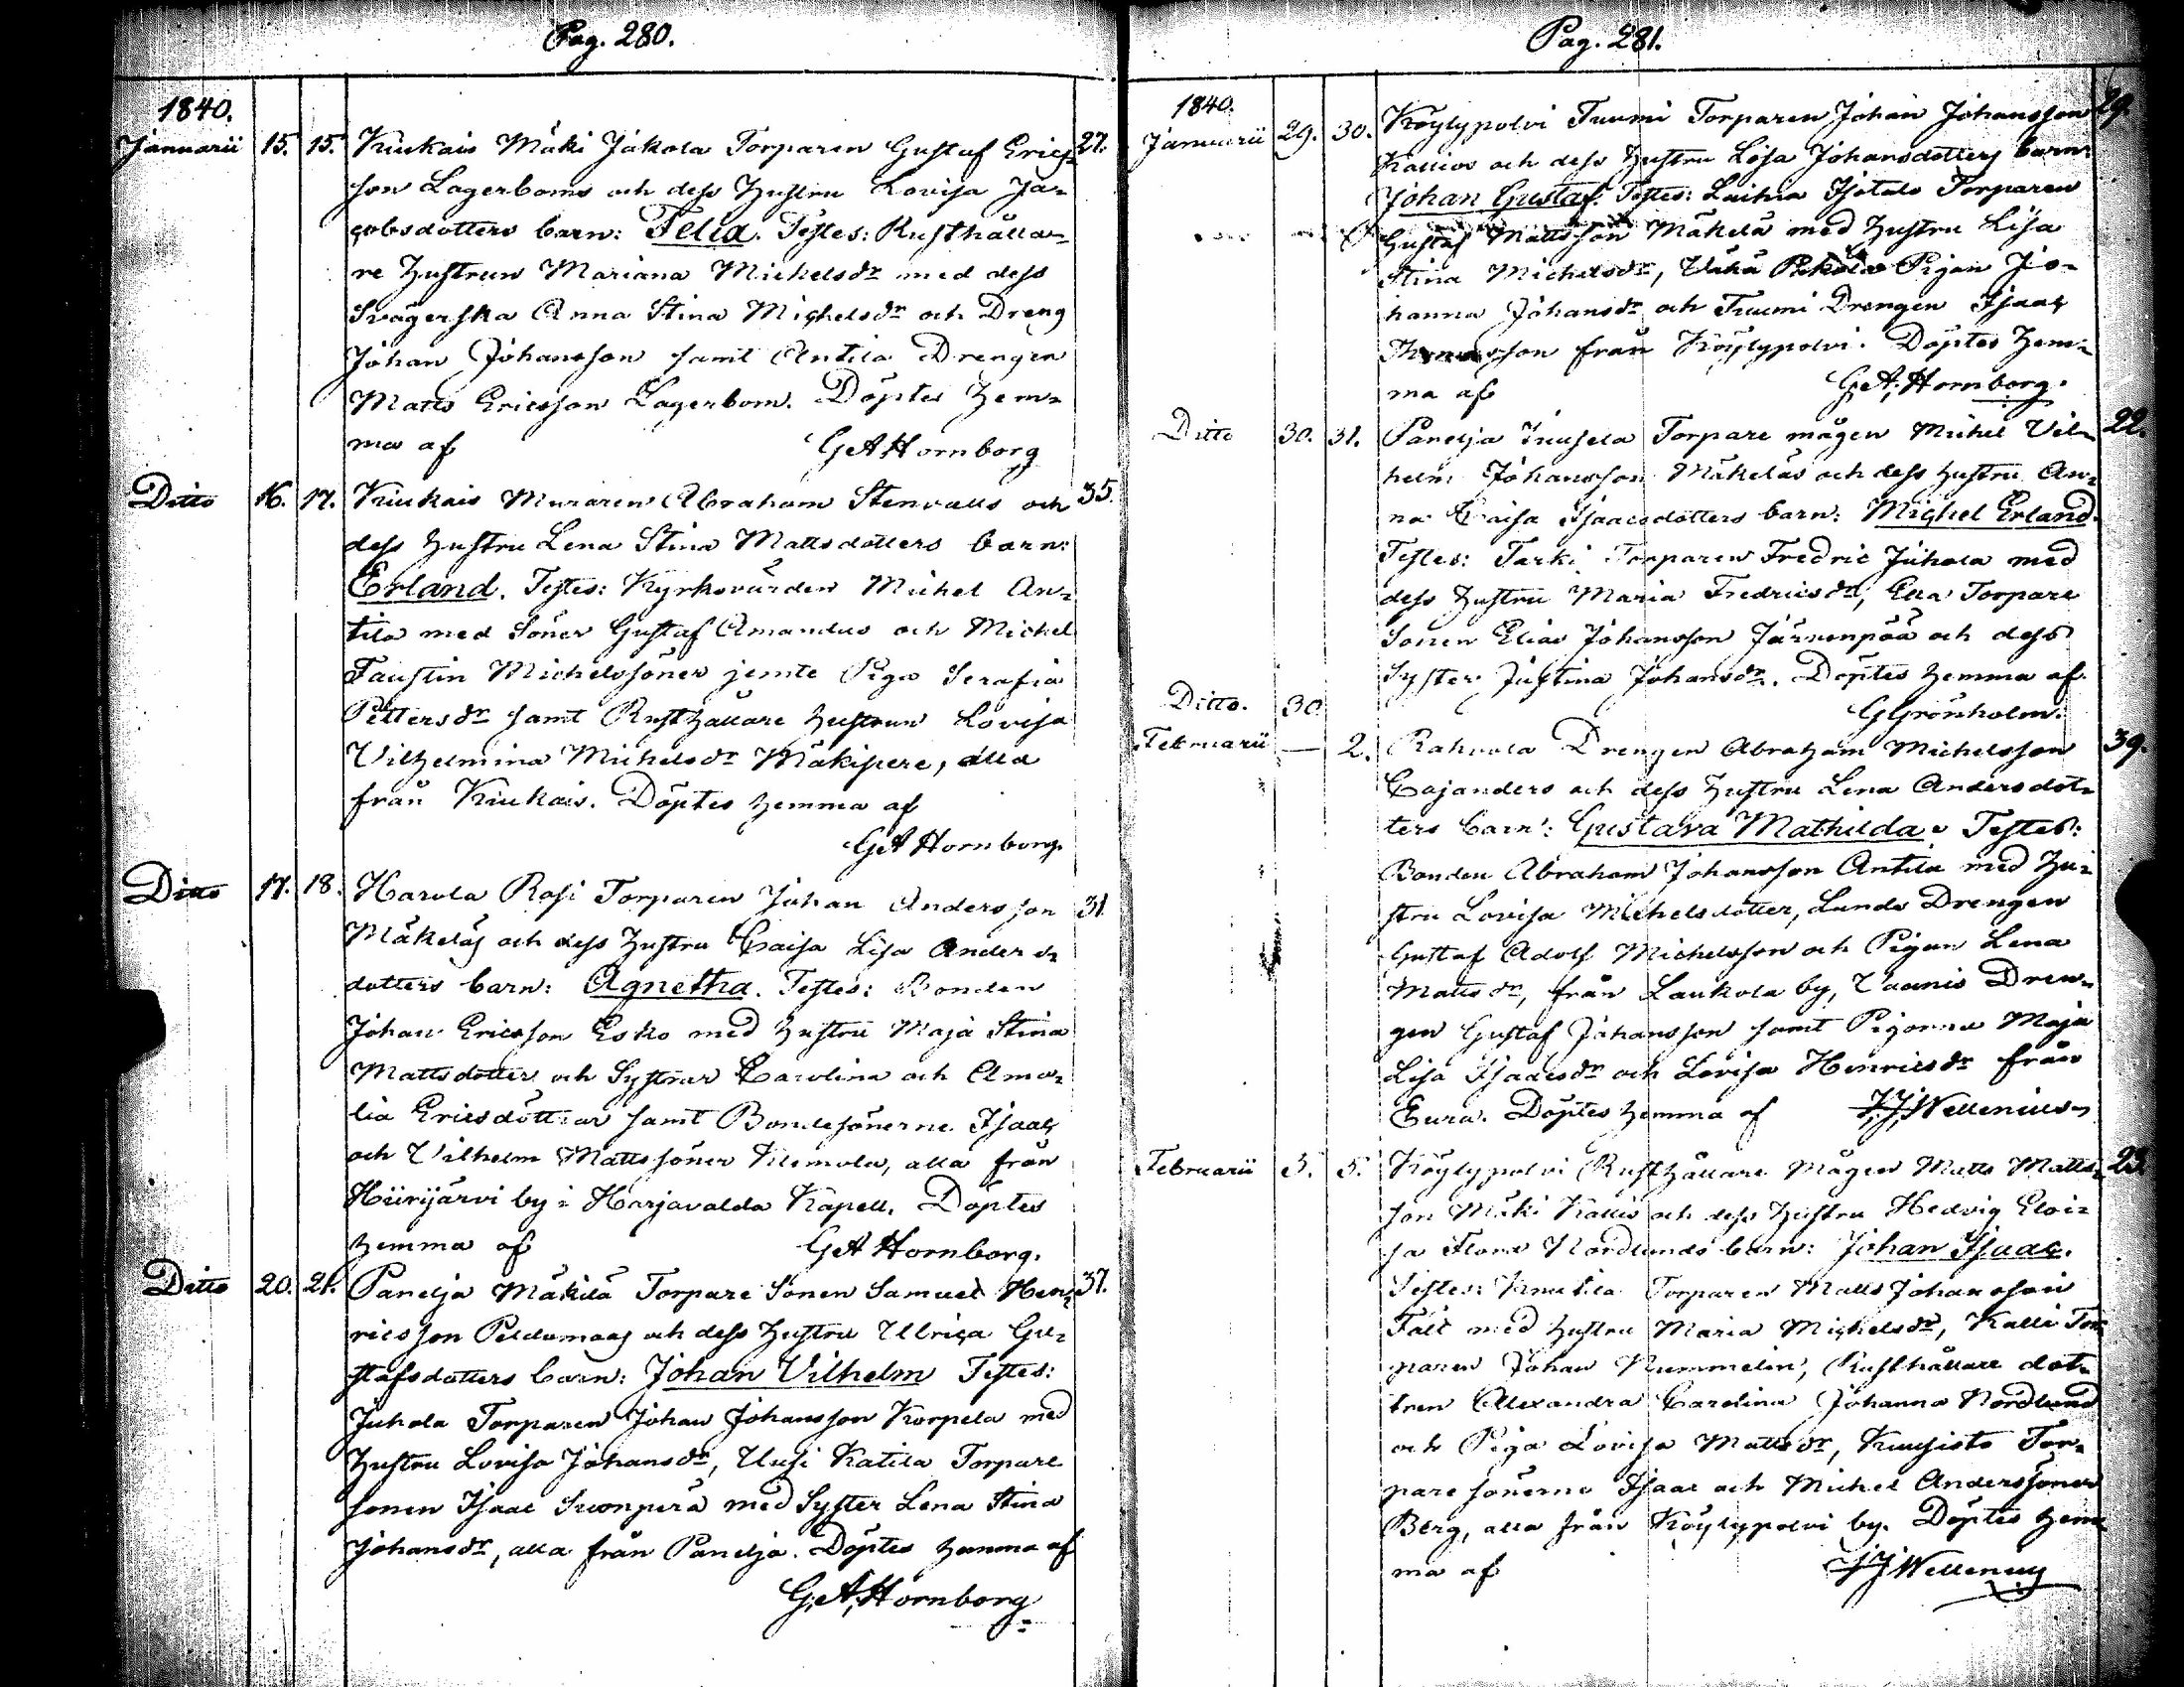 Pag. 280.
1840.
Januarii 15. 15. Kiukais Mäki Jakola Torparen Gustaf Erics- 27.
son Lagerboms och dess Hustru Lovisa Ja-
cobsdotters barn: Felia. Testes: Rusthålla-
re Hustrun Mariana Michelsdr med dess
Svägerska Anna Stina Michelsdr och Dreng
Johan Johansson samt Antila Drengen
Matts Ericsson Lagerbom. Döptes hem-
ma af GA Hornborg
Ditto 16. 17. Kiukais Muraren Abraham Stenvalls och 35.
dess Hustru Lena Stina Mattsdotters barn:
Erland. Testes: Kyrkovärden Michel An-
tila med Söner Gustaf Amandus och Michel
Faustin Michelssöner jemte Piga Serafia
Pettersdr samt Rusthållare Hustrun Lovisa
Vilhelmina Michelsdr Mäkipere, alla
från Kiukais. Döptes hemma af
GA Hornborg.
Ditto 17. 18. Harola Rasi Torparen Johan Andersson 31.
Mäkeläs och dess Hustru Caisa Lisa Anders-
dotters barn: Agnetha. Testes: Bonden
Johan Ericsson Esko med Hustru Maja Stina
Mattsdotter och Systrar Carolina och Ama-
lia Ericsdöttrar samt Bondesönerne Isaac
och Vilhelm Mattssöner Klemola, alla från
Hiirijärvi by i Harjavalda Kapell. Döptes
hemma af GA Hornborg.
Ditto 20. 21. Panelja Mäkilä Torpare Sonen Samuel Hen- 37.
ricsson Peldomaas och dess Hustru Ulrica Gu-
stafsdotters barn: Johan Vilhelm Testes:
Juhola Torparen Johan Johansson Korpela med
Hustru Lovisa Johansdr, Uusi Katila Torpare
sonen Isaac Suonperä med Syster Lena Stina
Johansdr, alla från Panelja. Döptes hemma af
G.A. Hornborg
Pag. 281.
1840.
Januarii 29. 30. Köylypolvi Tuomi Torparen Johan Johansson 29.
Kallios och dess Hustru Lisa Johansdotters barn:
Johan Gustaf. Testes: Laihia Isotalo Torparen
Gustaf Mattsson Mäkelä med Hustru Lisa
Stina Michelsdr, Pigan Jo-
hanna Johansdr och Tuomi Drengen Isaac
från Köylypolvi. Döptes hem-
ma af G.A. Hornborg.
Ditto 30. 31. Panelja Torpare mågen Michel Vil- 22.
helm Johansson Mäkeläs och dess Hustru An-
na Caisa Isaacsdotters barn: Michel Erland.
Testes: Torparen Fredric Juhola med
dess Hustru Maria Fredricsdr, Torpare
Sonen Elias Johansson Järvenpää och dess
Syster Justina Johansdr. Döptes hemma af
G Grönholm.
Ditto. 30.
Februarii — 2. Rahvola Drengen Abraham Michelsson 39.
Cajanders och dess Hustru Lena Andersdot-
ters barn: Gustava Mathilda. Testes:
Bonden Abraham Johansson Antila med Hu-
stru Lovisa Michelsdotter, Lunds Drengen
Gustaf Adolf Michelsson och Pigan Lena
Mattsdr, från Laukola by, Vaanis Dren-
gen Gustaf Johansson samt Pigorna Maja
Lisa Isaacsdr och Lovisa Henricsdr från
Eura. Döptes hemma af J.J. Wellenius
Februarii 3. 5. Köylypolvi Rusthållare Mågen Matts Matts- 23.
son Mäki Kallis och dess Hustru Hedvig Eloi-
sa Flora Nordlunds barn: Johan Isaac.
Testes: Torparen Matts Johansson
Fält med Hustru Maria Michelsdr, Kalli Tor-
paren Johan Nummelin, Rusthållare dot-
tren Alexandra Carolina Johanna Nordlund
och Piga Lovisa Mattsdr, Kuusisto Tor-
pare sönerne Isaac och Michel Anderssöner
Berg, alla från Köylypolvi by. Döptes hem-
ma af JJ Wellenius